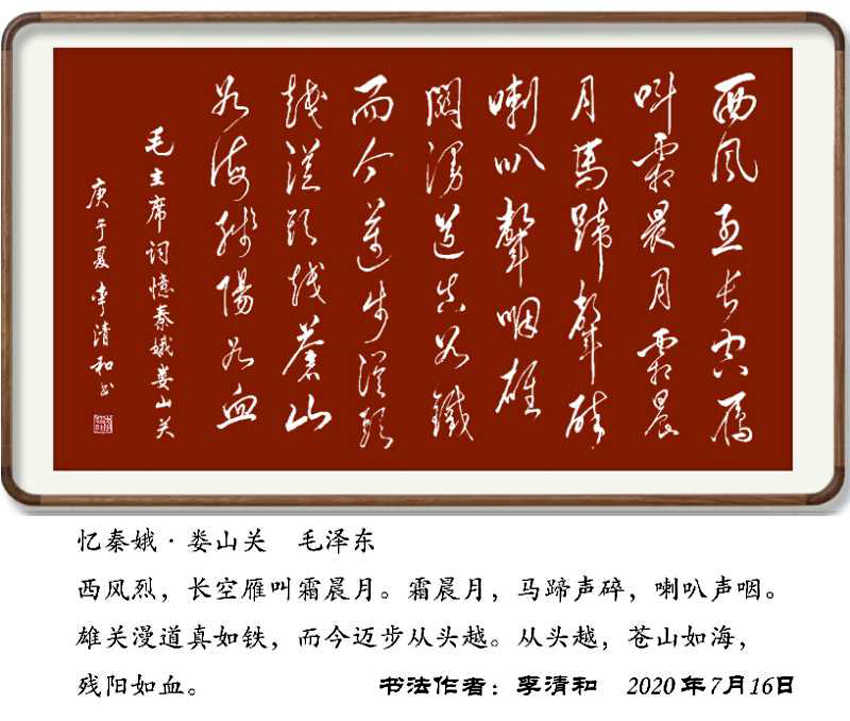 西风烈长空雁
叫霜晨月霜晨
月馬蹄聲碎
喇叭聲咽雄
関漫道真如鐵
而今邁步從頭
越從頭越蒼山
如海殘陽如血
毛主席词憶秦娥娄山关
庚子夏 李清和书
忆秦娥·娄山关 毛泽东
西风烈，长空雁叫霜晨月。霜晨月，马蹄声碎，喇叭声咽。
雄关漫道真如铁，而今迈步从头越。从头越，苍山如海，
残阳如血。
书法作者：李清和 2020年7月16日